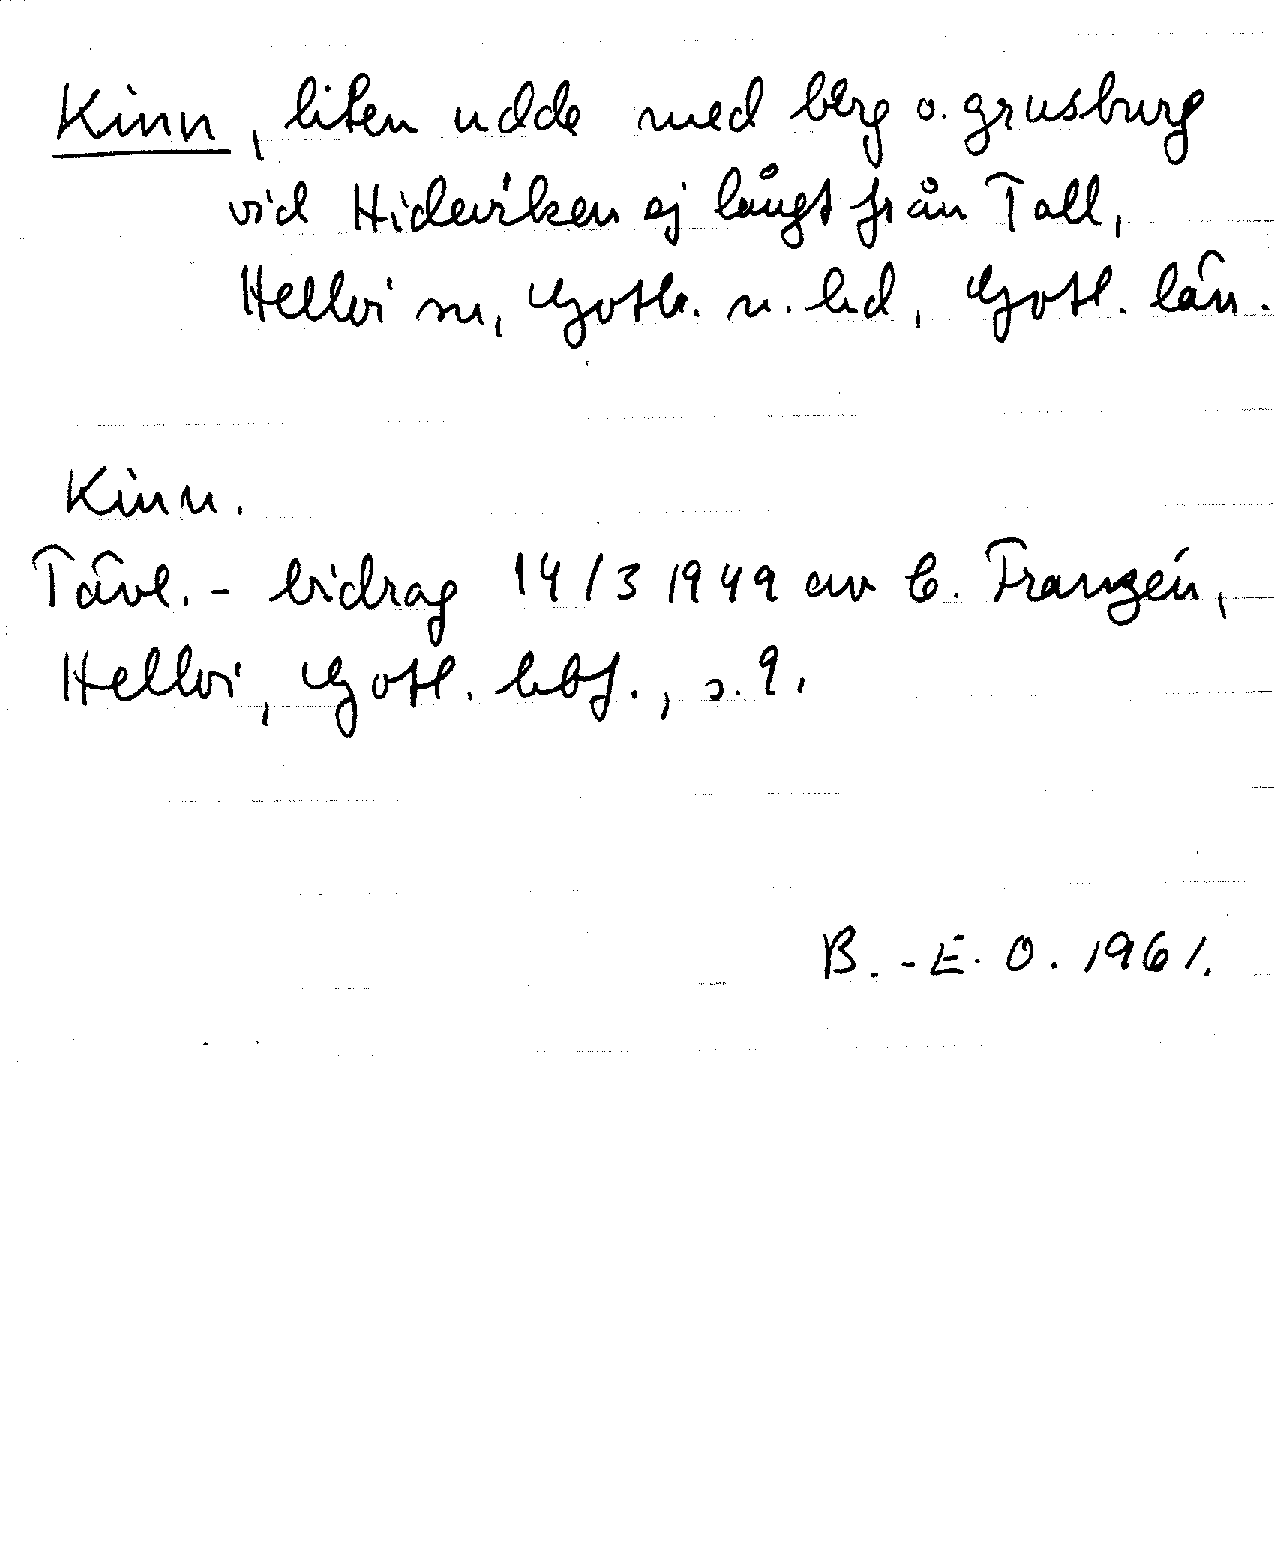 Kinn, liten udde med berg o. grusburg
vid Hideviken ej långt från Tall,
Hellvi sn, Gotl. n. hd, Gotl. län.
Kinn.
Tävl.-bidrag 14/3 1949 av C. Franzén,
Hellvi, Gotl. hbf., s. 9.
B.-E. O. 1961.